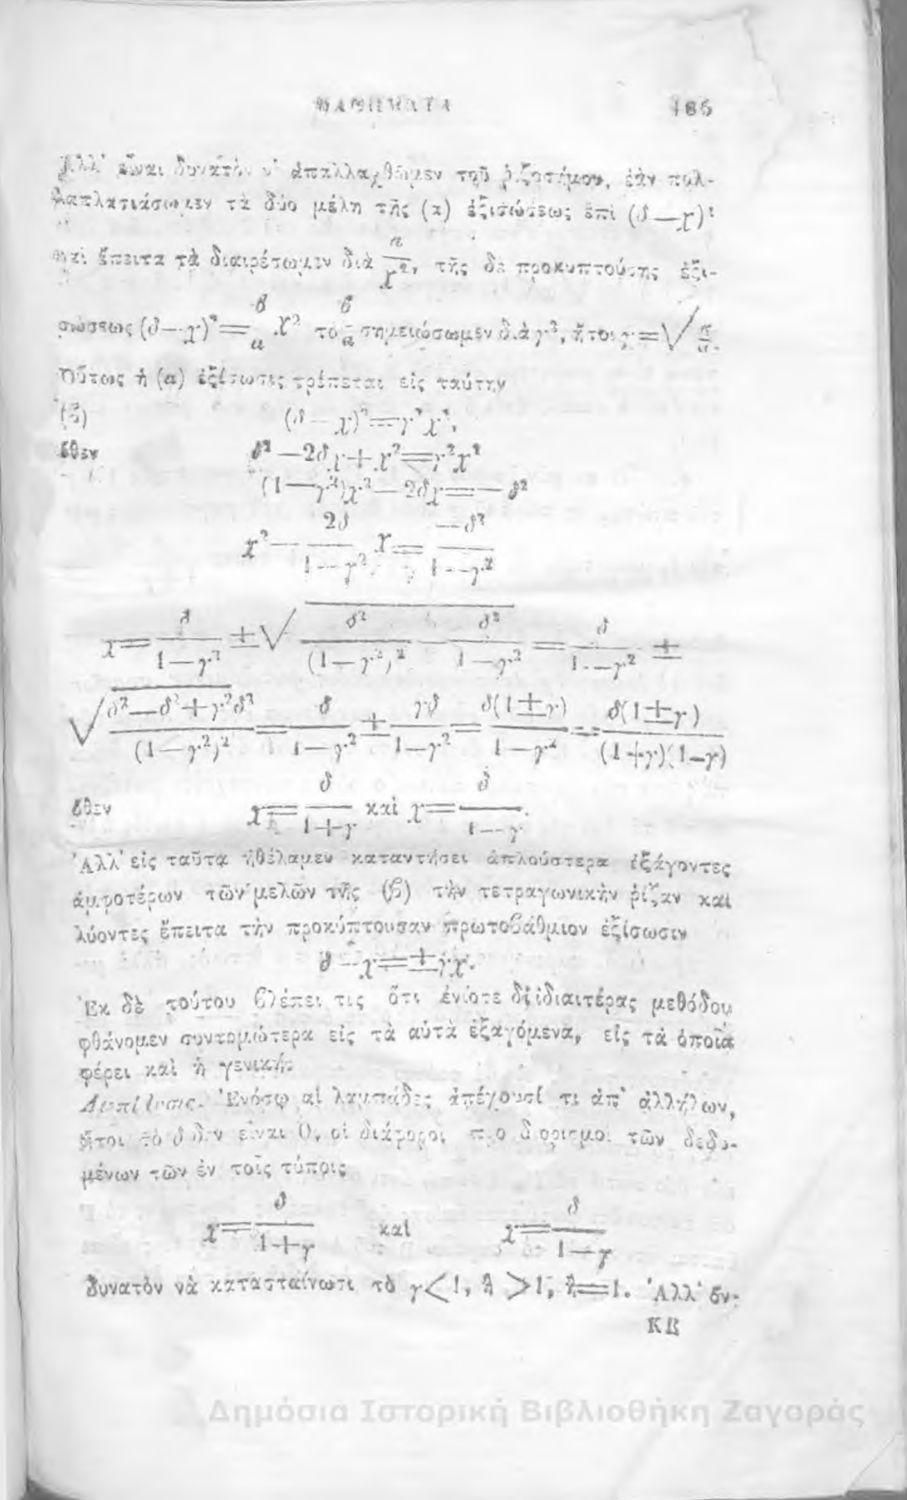 ΜΑΘΗΜΑΤΑ 185
Ἀλλ' εἶναι δυνατὸν ν' ἀπαλλαχθῶμεν τοῦ ῥιζοσήμου, ἐὰν πολ-
λαπλασιάσωμεν τὰ δύο μέλη τῆς (α) ἐξισώσεως ἐπὶ (δ—χ)²
καὶ ἔπειτα τὰ διαιρέσωμεν διὰ α/χ², τῆς δὲ προκυπτούσης ἐξι-
σώσεως (δ—χ)²= β/α χ² τὸ β/α σημειώσωμεν διὰ γ², ἤτοι γ=√
Οὕτως ἡ (α) ἐξίσωσις τρέπεται εἰς ταύτην
(β) (δ—χ)²=γ²χ²,
ὅθεν δ²—2δχ+χ²=γ²χ²
(1—γ²)χ²—2δχ=—δ²
χ²— 2δ/1—γ² χ= —δ²/1—γ²
χ= δ/1—γ² ±√ δ²/(1—γ²)² — δ²/1—γ² = δ/1—γ² ±
√ δ²—δ²+γ²δ²/(1—γ²)² = δ/1—γ² ± γδ/1—γ² = δ(1±γ)/1—γ² = δ(1±γ)/(1+γ)(1—γ)
ὅθεν χ= δ/1+γ καὶ χ= δ/1—γ.
Ἀλλ' εἰς ταῦτα ἠθέλαμεν καταντήσει ἁπλούστερα ἐξάγοντες
ἀμφοτέρων τῶν μελῶν τῆς (β) τὴν τετραγωνικὴν ῥίζαν καὶ
λύοντες ἔπειτα τὴν προκύπτουσαν πρωτοβάθμιον ἐξίσωσιν
δ—χ=±γχ.
Ἐκ δὲ τούτου βλέπει τις ὅτι ἐνίοτε δι' ἰδιαιτέρας μεθόδου
φθάνομεν συντομώτερα εἰς τὰ αὐτὰ ἐξαγόμενα, εἰς τὰ ὁποῖα
φέρει καὶ ἡ γενική.
Ἐνόσῳ αἱ λαμπάδες ἀπέχουσί τι ἀπ' ἀλλήλων,
ἤτοι τὸ δ δὲν εἶναι 0, οἱ διάφοροι προσδιορισμοὶ τῶν δεδο-
μένων τῶν ἐν τοῖς τύποις
χ= δ/1+γ καὶ χ= δ/1—γ
δυνατὸν νὰ κατασταίνωσι τὸ γ<1, ἢ >1, ἢ=1. Ἀλλ' ἂν
ΚΒ
Δημόσια Ιστορική Βιβλιοθήκη Ζαγοράς